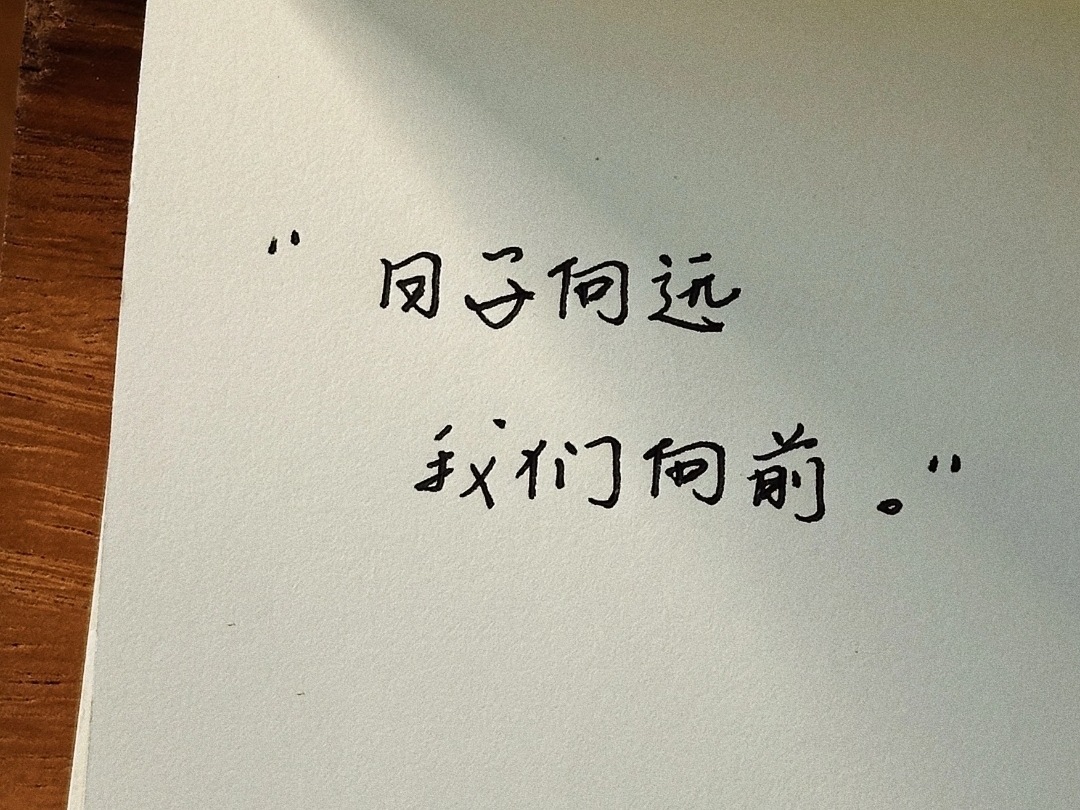 "日子向远
我们向前。"